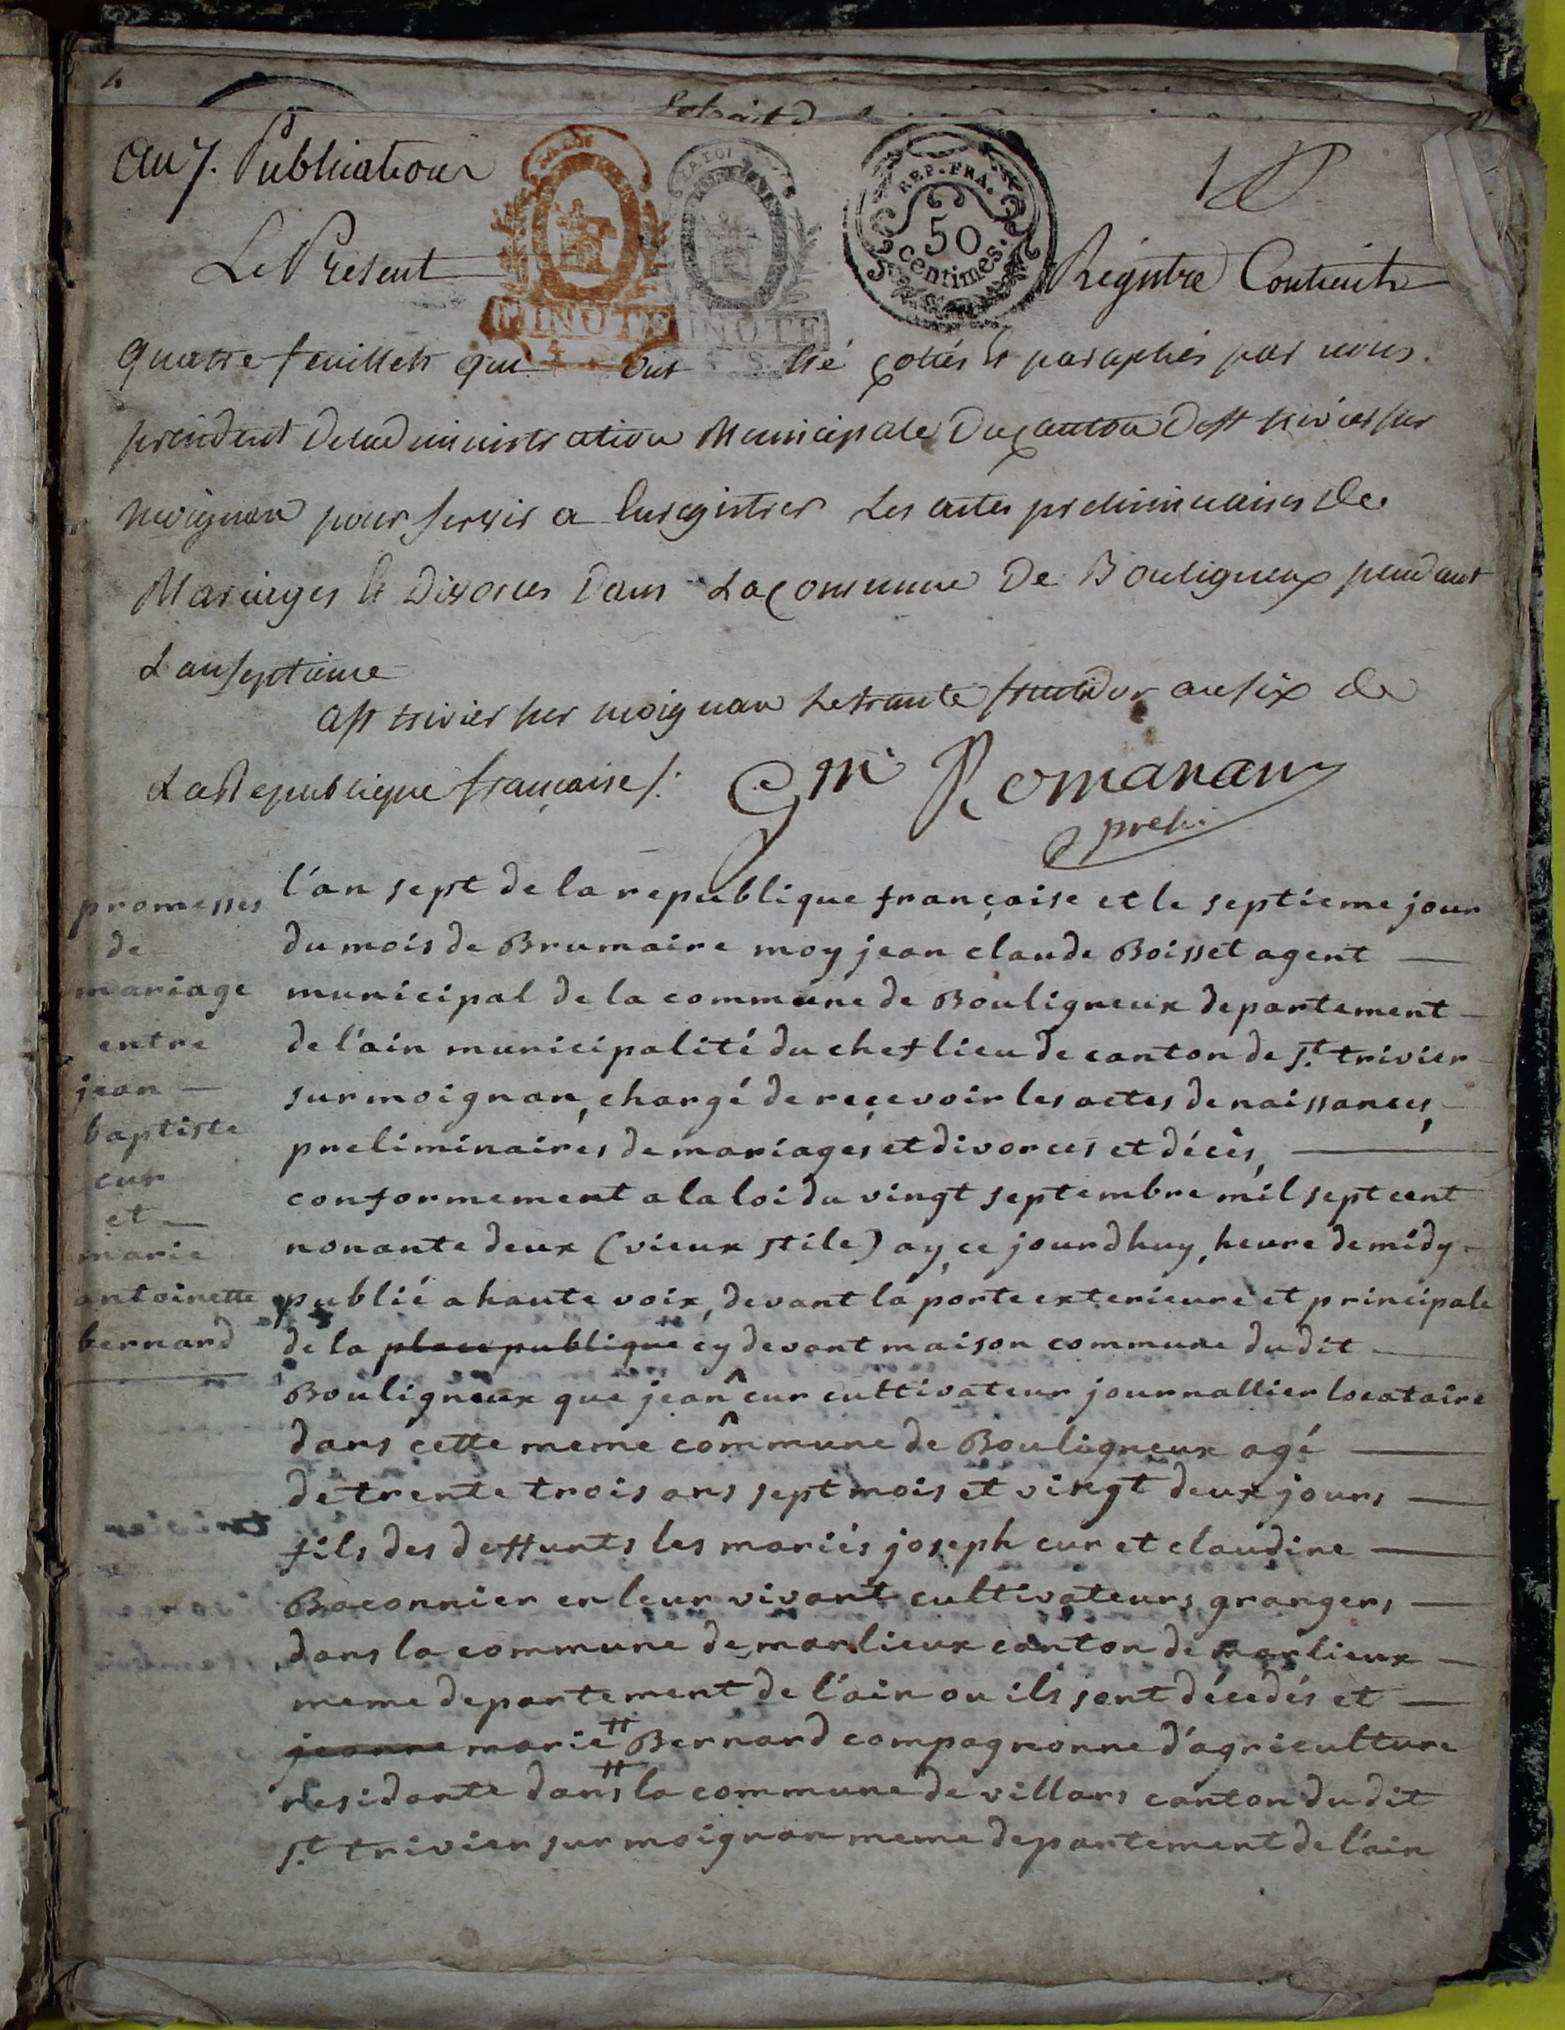 an 7. Publication
REP. FRA.
50
centimes.
Le Present Registre Contenant
quatre feuillets qui ont été cottés et paraphés par nous
president de l'administration Municipale du canton de st trivier sur
moignan pour servir a Enregistrer Les actes preliminaires de
Mariages et Divorces dans La commune De Bouligneux pendant
L an septieme
a st trivier sur moignan le trante fructidor an six de
La Republique française /.
Gm Romanans
presi.
promesses
de
mariage
entre
jean
baptiste
cur
et
marie
antoinette
bernard
l'an sept de la republique française et le septieme jour
du mois de Brumaire moy jean claude Boisset agent
municipal de la commune de Bouligneux departement
de l'ain municipalité du chef lieu de canton de st. trivier
sur moignan, chargé de recevoir les actes de naissances,
preliminaires de mariages et divorces et décès,
conformement a la loi du vingt septembre mil sept cent
nonante deux (vieux stile) ay, ce jourdhuy, heure de midy
publié a haute voix, devant la porte exterieure et principale
de la place publique cy devant maison commune du dit
Bouligneux que jean ^ cur cultivateur journallier locataire
dans cette meme commune de Bouligneux agé
de trente trois ans sept mois et vingt deux jours
fils des deffunts les mariés joseph cur et claudine
Baconnier en leur vivant cultivateurs grangers
dans la commune de marlieux canton de marlieux
meme departement de l'ain ou ils sont décedés et
jeanne marie # Bernard compagnonne d'agriculture
residante dans la commune de villars canton du dit
st. trivier sur moignan meme departement de l'ain